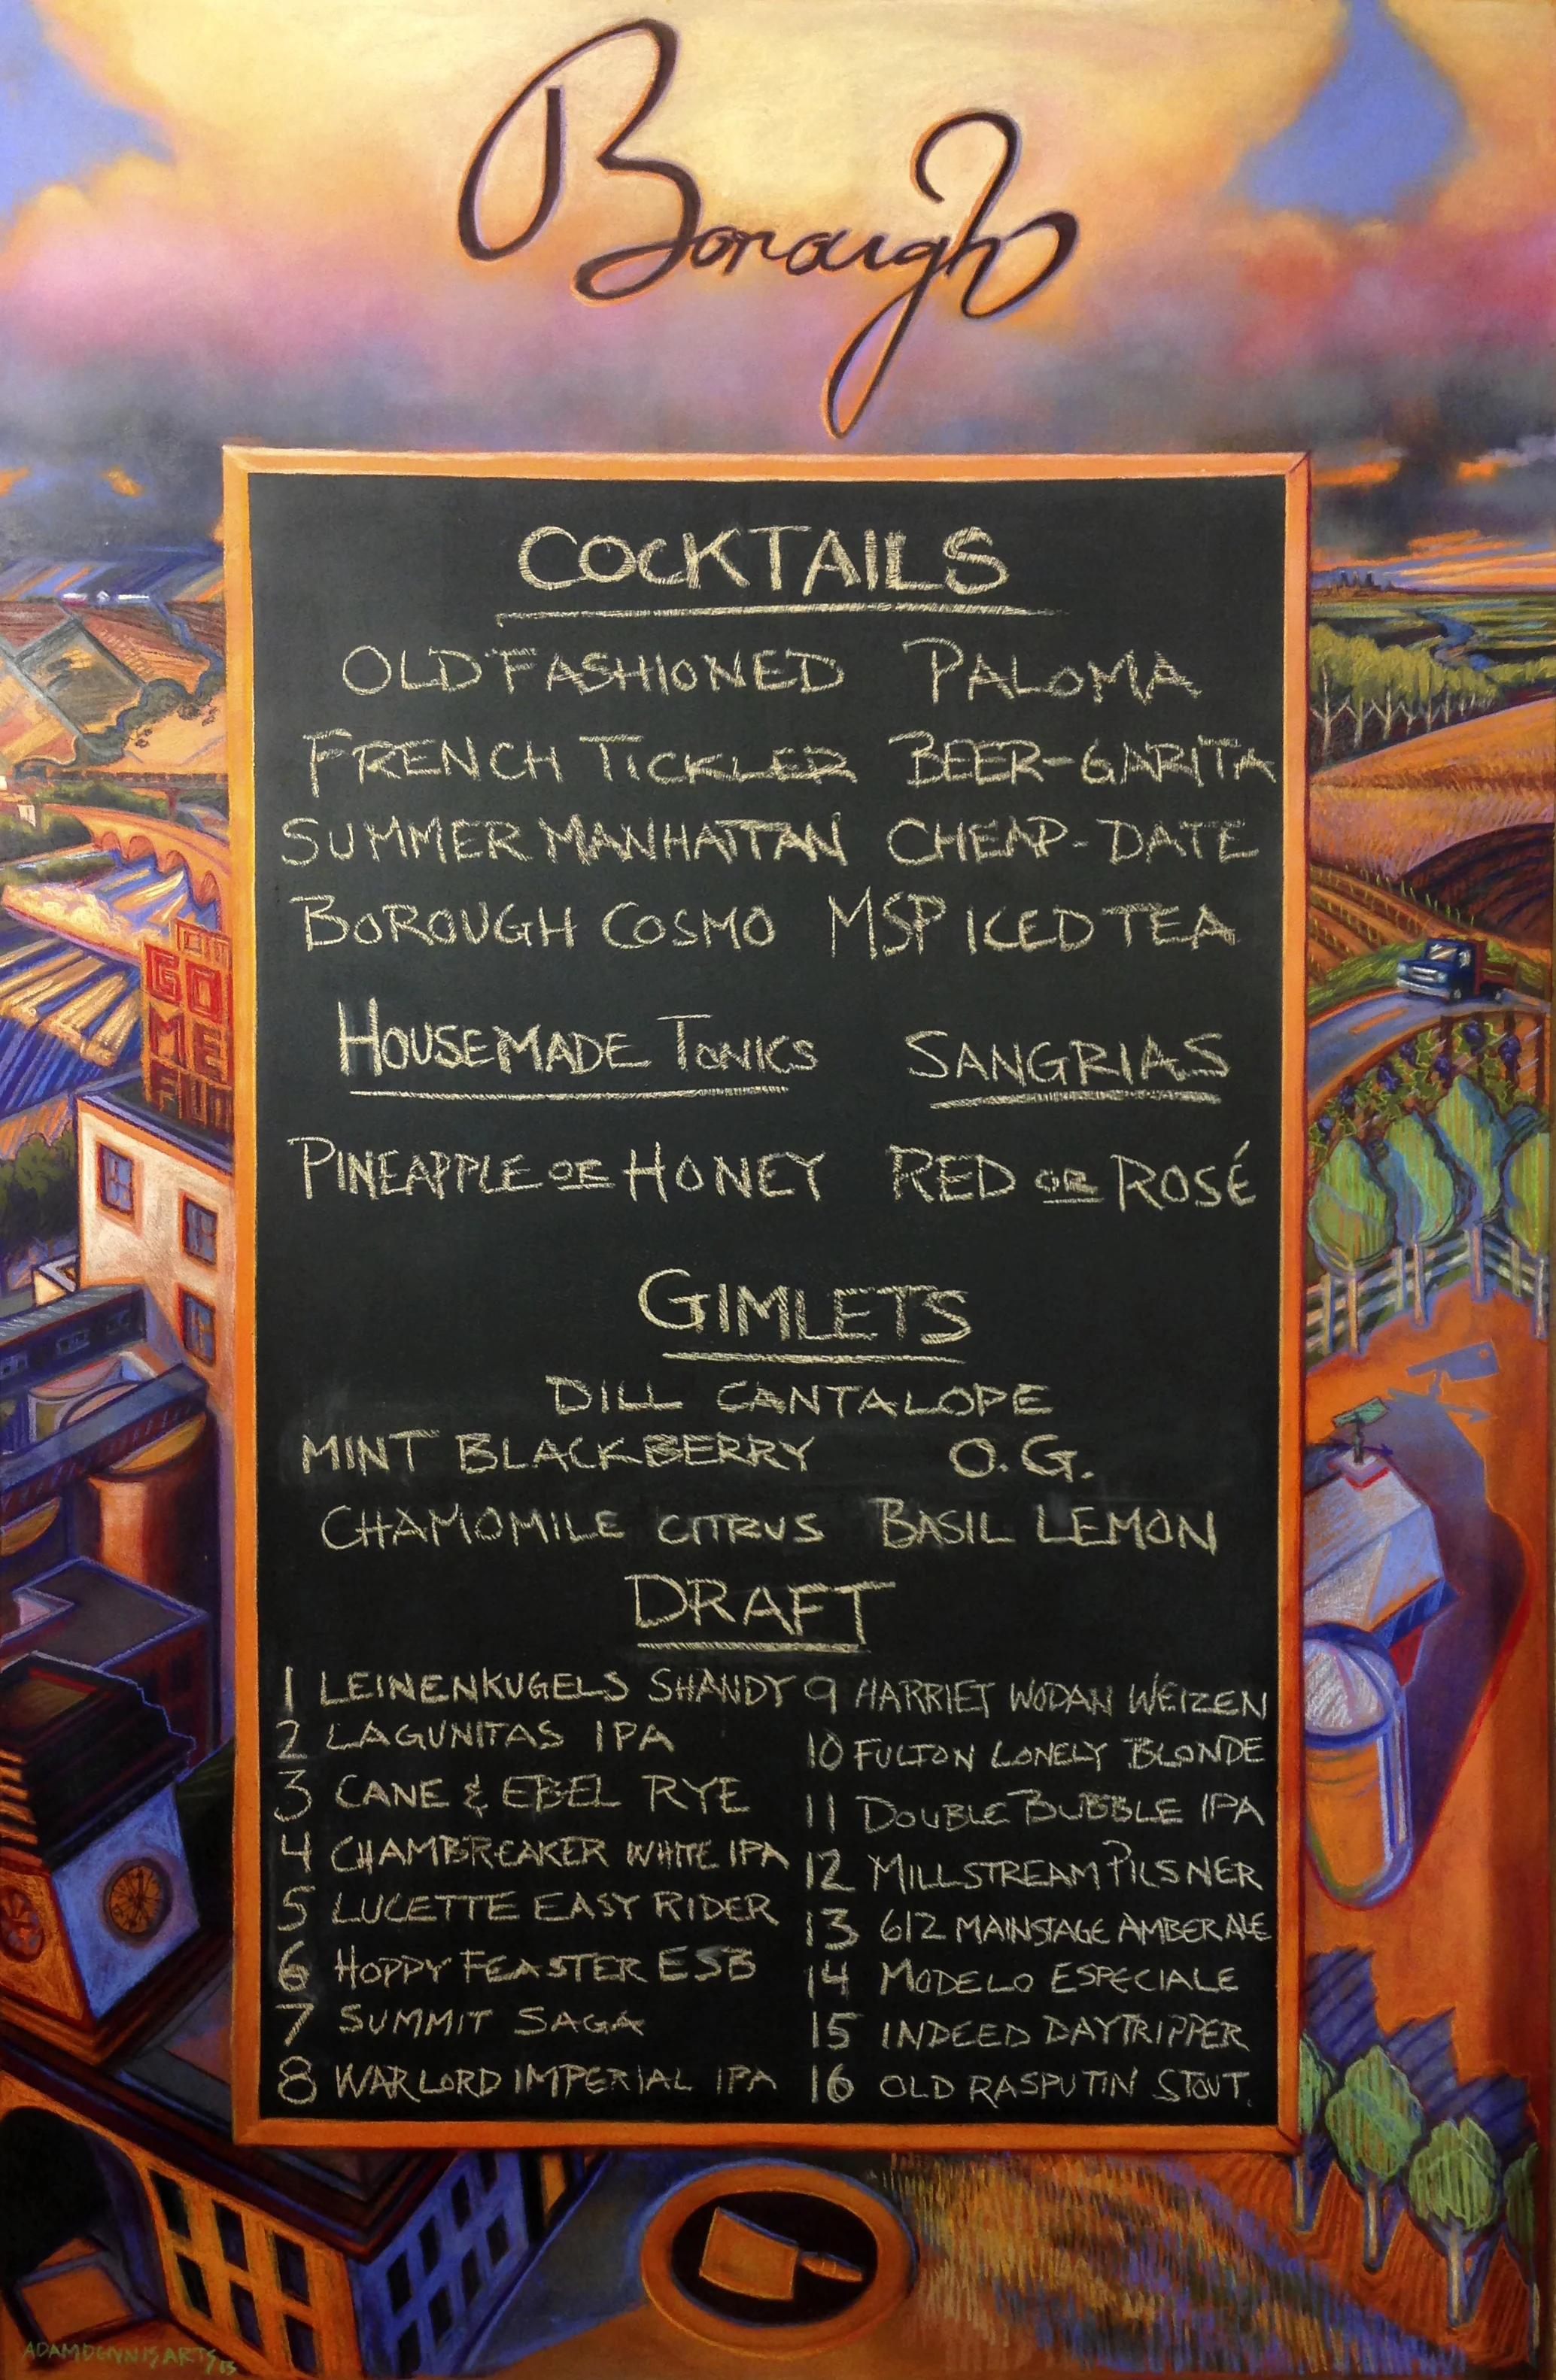 Borough
COCKTAILS
OLD FASHIONED PALOMA
FRENCH TICKLER BEER-GARITA
SUMMER MANHATTAN CHEAP-DATE
BOROUGH COSMO MSP ICED TEA
HOUSEMADE TONICS SANGRIAS
PINEAPPLE OR HONEY RED OR ROSÉ
GIMLETS
DILL CANTALOPE
MINT BLACKBERRY O.G.
CHAMOMILE CITRUS BASIL LEMON
DRAFT
1 LEINENKUGELS SHANDY
2 LAGUNITAS IPA
3 CANE & EBEL RYE
4 CHAMBREAKER WHITE IPA
5 LUCETTE EASY RIDER
6 HOPPY FEASTER ESB
7 SUMMIT SAGA
8 WARLORD IMPERIAL IPA
9 HARRIET WODAN WEIZEN
10 FULTON LONELY BLONDE
11 DOUBLE BUBBLE IPA
12 MILLSTREAM PILSNER
13 612 MAINSTAGE AMBER ALE
14 MODELO ESPECIALE
15 INDEED DAYTRIPPER
16 OLD RASPUTIN STOUT.
GO
ME
ADAMDENNISARTS 13